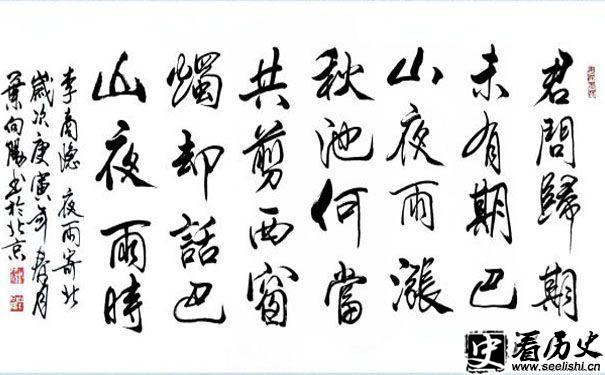 君問歸期
未有期巴
山夜雨漲
秋池何當
共剪西窗
燭却話巴
山夜雨時
李商隐 夜雨寄北
歲次庚寅年春月
葉向陽书於北京
史 看历史
www.seelishi.cn